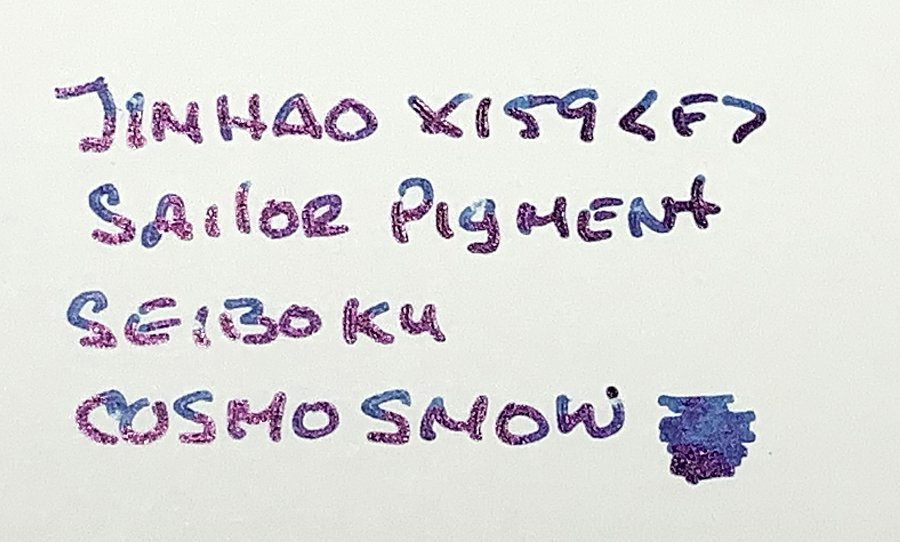 JINHAO X159 <F>
SAilOR PigMENt
SEIBOKU
COSMO SMOW